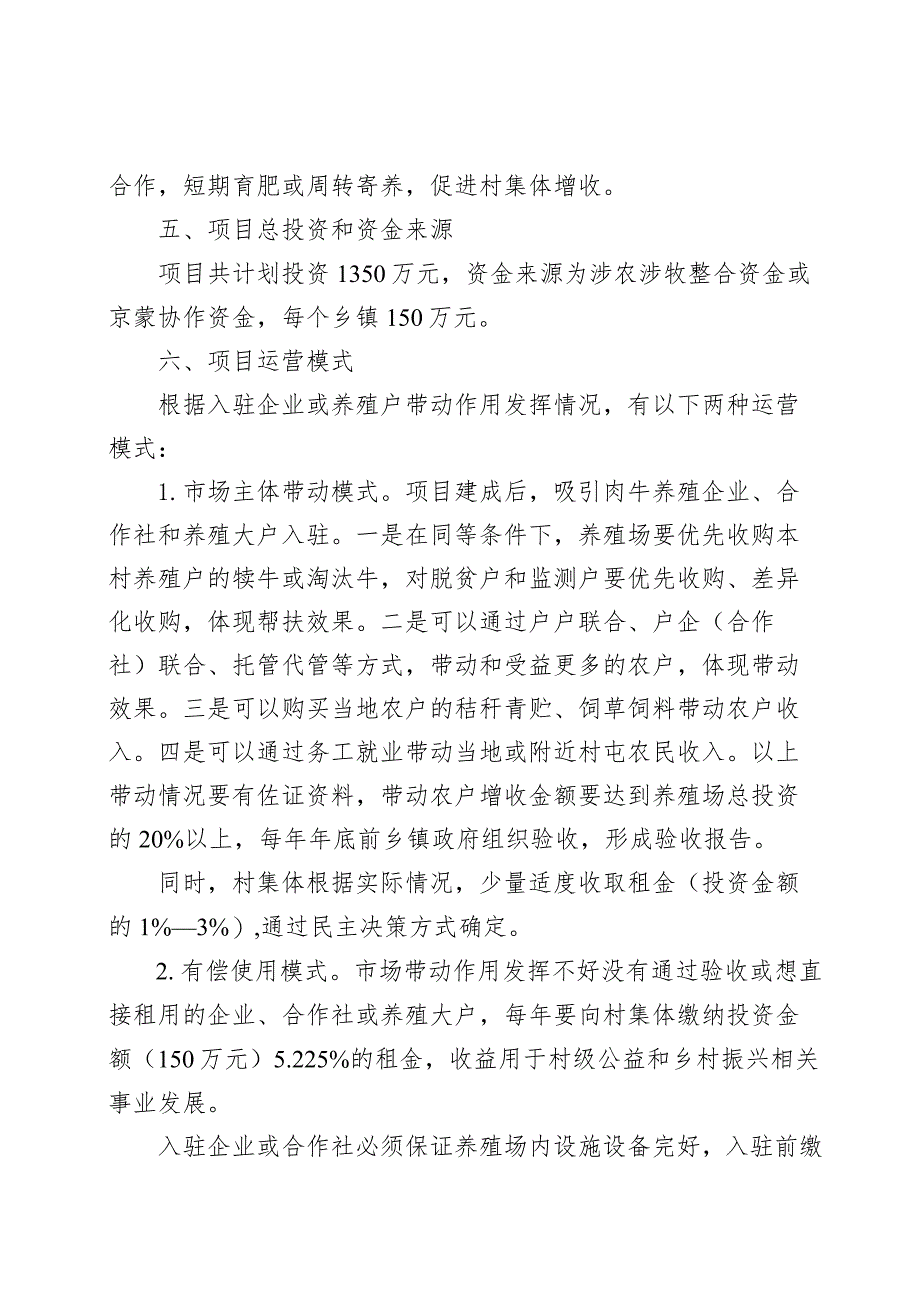 合作，短期育肥或周转寄养，促进村集体增收。
五、项目总投资和资金来源
项目共计划投资 1350 万元，资金来源为涉农涉牧整合资金或
京蒙协作资金，每个乡镇 150 万元。
六、项目运营模式
根据入驻企业或养殖户带动作用发挥情况，有以下两种运营
模式：
1. 市场主体带动模式。项目建成后，吸引肉牛养殖企业、合
作社和养殖大户入驻。一是在同等条件下，养殖场要优先收购本
村养殖户的犊牛或淘汰牛，对脱贫户和监测户要优先收购、差异
化收购，体现帮扶效果。二是可以通过户户联合、户企（合作
社）联合、托管代管等方式，带动和受益更多的农户，体现带动
效果。三是可以购买当地农户的秸秆青贮、饲草饲料带动农户收
入。四是可以通过务工就业带动当地或附近村屯农民收入。以上
带动情况要有佐证资料，带动农户增收金额要达到养殖场总投资
的 20%以上，每年年底前乡镇政府组织验收，形成验收报告。
同时，村集体根据实际情况，少量适度收取租金（投资金额
的 1%—3%）,通过民主决策方式确定。
2. 有偿使用模式。市场带动作用发挥不好没有通过验收或想直
接租用的企业、合作社或养殖大户，每年要向村集体缴纳投资金
额（150 万元）5.225%的租金，收益用于村级公益和乡村振兴相关
事业发展。
入驻企业或合作社必须保证养殖场内设施设备完好，入驻前缴